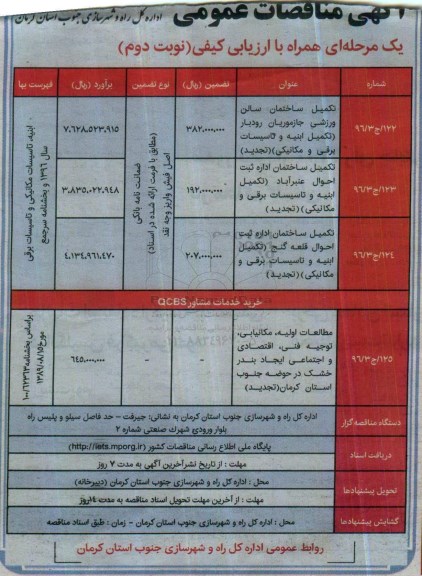 آگهی مناقصات عمومی
اداره کل راه و شهرسازی جنوب استان کرمان
یک مرحله‌ای همراه با ارزیابی کیفی(نوبت دوم)
شماره
عنوان
تضمین (ریال)
نوع تضمین
برآورد (ریال)
فهرست بها
۹۶/۳/ج/۱۲۲
تکمیل ساختمان سالن
ورزشی جازموریان رودبار
(تکمیل ابنیه و تاسیسات
برقی و مکانیکی)(تجدید)
۳۸۲,۰۰۰,۰۰۰
۷,۶۲۸,۵۲۳,۹۱۵
۹۶/۳/ج/۱۲۳
تکمیل ساختمان اداره ثبت
احوال عنبرآباد (تکمیل
ابنیه و تاسیسات برقی و
مکانیکی)(تجدید)
۱۹۲,۰۰۰,۰۰۰
۳,۸۳۵,۰۲۲,۹۴۸
۹۶/۳/ج/۱۲۴
تکمیل ساختمان اداره ثبت
احوال قلعه گنج (تکمیل
ابنیه و تاسیسات برقی و
مکانیکی)(تجدید)
۲۰۷,۰۰۰,۰۰۰
۴,۱۳۴,۹۶۱,۴۷۰
اصل فیش واریز وجه نقد
ضمانت نامه بانکی
(مطابق با فرمت ارائه شده در اسناد)
ابنیه، تاسیسات مکانیکی و تاسیسات برقی
سال ۱۳۹۶ و بخشنامه سرجمع
خرید خدمات مشاور QCBS
۹۶/۳/ج/۱۲۵
مطالعات اولیه، مکانیابی،
توجیه فنی، اقتصادی
و اجتماعی ایجاد بندر
خشک در حوضه جنوب
استان کرمان(تجدید)
-
-
۶۴۵,۰۰۰,۰۰۰
براساس بخشنامه ۱۰۰/۶۲۳۶۳
مورخ ۱۳۸۹/۰۸/۱۵
دستگاه مناقصه‌گزار
اداره کل راه و شهرسازی جنوب استان کرمان به نشانی: جیرفت - حد فاصل سیلو و پلیس راه
بلوار ورودی شهرک صنعتی شماره ۲
دریافت اسناد
پایگاه ملی اطلاع رسانی مناقصات کشور (http://iets.mporg.ir)
مهلت : از تاریخ نشر آخرین آگهی به مدت ۷ روز
تحویل پیشنهادها
محل : اداره کل راه و شهرسازی جنوب استان کرمان (دبیرخانه)
مهلت : از آخرین مهلت تحویل اسناد مناقصه به مدت روز
گشایش پیشنهادها
محل : اداره کل راه و شهرسازی جنوب استان کرمان - زمان : طبق اسناد مناقصه
روابط عمومی اداره کل راه و شهرسازی جنوب استان کرمان